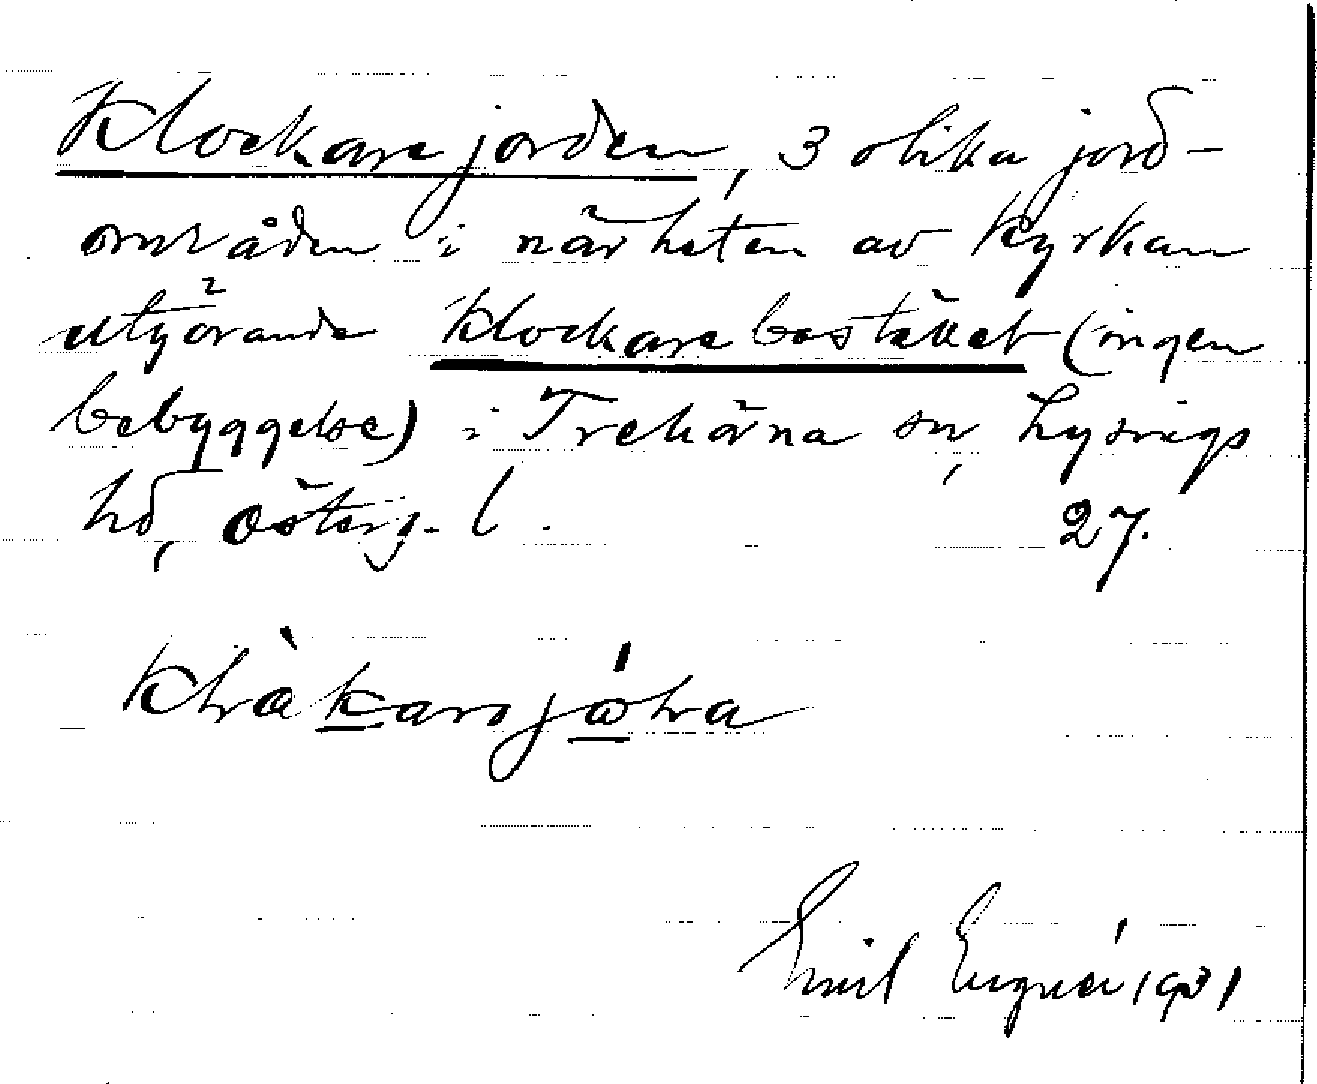 Klockarejorden, 3 olika jord-
områden i närheten av kyrkan
utgörande Klockarebostället (ingen
bebyggelse) i Trehörna sn, Lysings
hd, Österg. l. 27.
Emil Engnér 1931